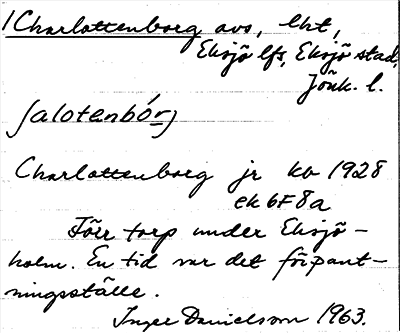 1 Charlottenborg avs, lht,
Eksjö lfs, Eksjö stad,
Jönk. l.
ʃalotenbórj
Charlottenborg jr kv 1928
ek 6F8a
Förr torp under Eksjö-
holm. En tid var det förpant-
ningsställe.
Inger Danielsson 1963.